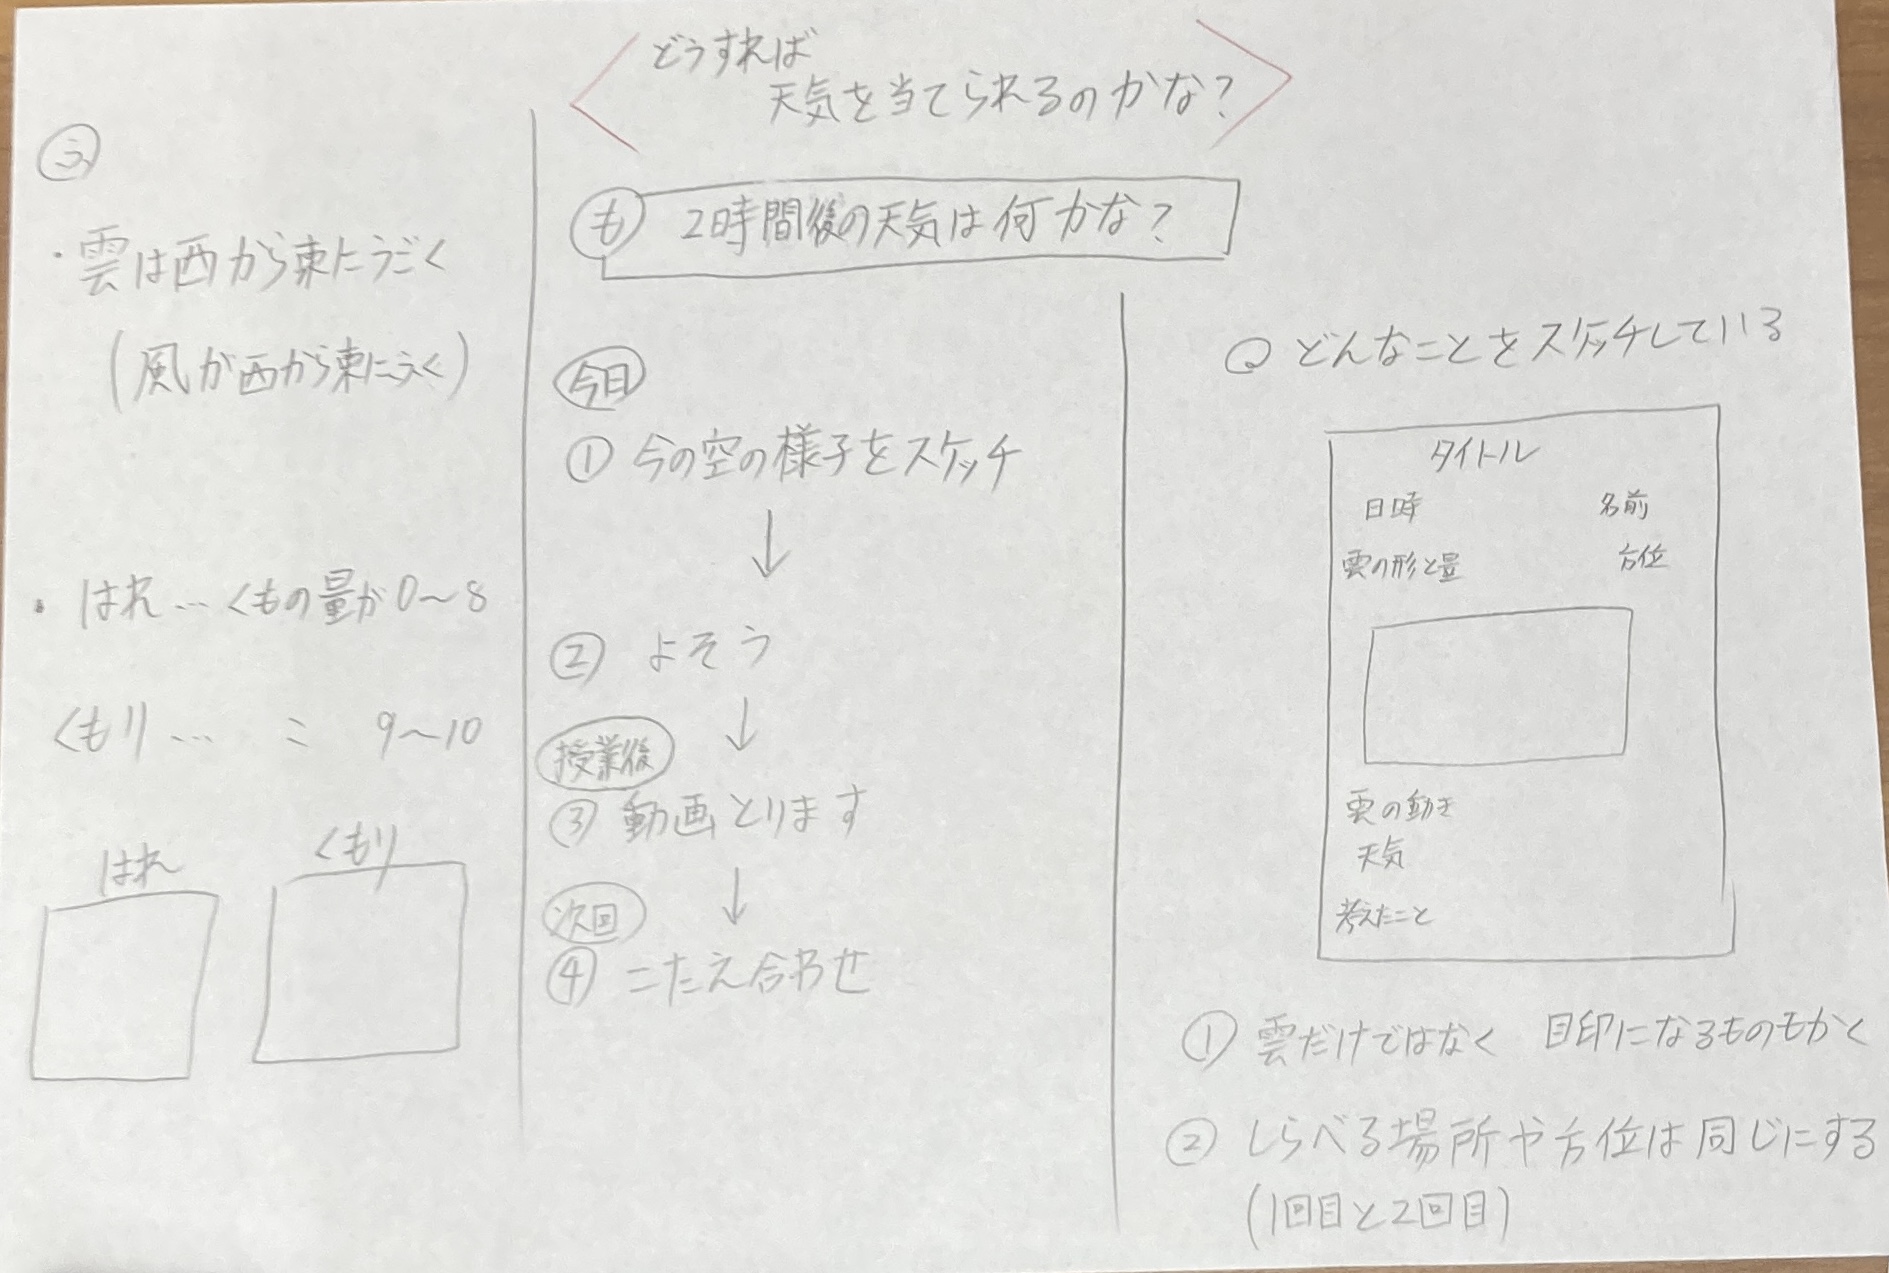 どうすれば
天気を当てられるのかな?
ふ
・雲は西から東にうごく
(風が西から東にふく)
・はれ…くもの量が0～8
くもり… 〃 9～10
はれ
くもり
も 2時間後の天気は何かな?
今日
① 今の空の様子をスケッチ
↓
② よそう
↓
授業後
③ 動画とります
↓
次回
④ こたえ合わせ
Q どんなことをスケッチしている
タイトル
日時 名前
雲の形と量 方位
雲の動き
天気
考えたこと
① 雲だけではなく 目印になるものもかく
② しらべる場所や方位は同じにする
(1回目と2回目)